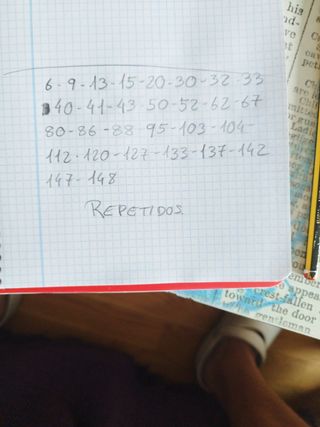 6-9-13-15-20-30-32-33
40-41-43-50-52-62-67
80-86-88-95-103-104-
112-120-127-133-137-142
147-148
REPETIDOS.
his
crest-fallen
toward the door
gentleman